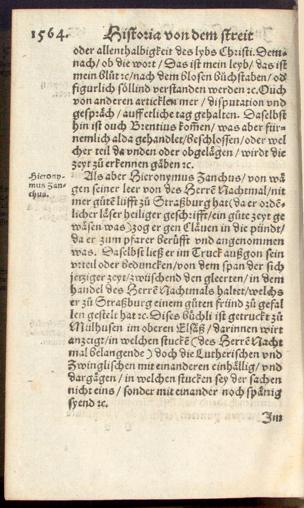 1564. Historia von dem streit
oder allenthalbigkeit des lybs Christi. Dem-
nach/ ob die wort/ Das ist mein leyb/ das ist
mein blůt ꝛc/ nach dem blosen bůchstaben/ od
figurlich söllind verstanden werden ꝛc. Ouch
von anderen articklen mer/ disputation vnd
gespräch/ auff etliche tag gehalten. Daselbst
hin ist ouch Brentius kommen/ was aber für-
nemlich alda gehandlet/ beschlossen/ oder wel
cher teil da vnden oder obgelägen/ wirdt die
zeyt zů erkennen gäben ꝛc.
Hierony-
mus Zan-
chus.
Als aber Hieronymus Zanchus/ von wä
gen seiner leer von des Herrē Nachtmal/ nit
mer gůte lufft zů Straßburg hat (da er ordē-
licher läser heiliger geschrifft/ ein gůte zeyt ge
wäsen was) zog er gen Cläuen in die pündt/
da er zum pfarer berůfft vnd angenommen
was. Daselbst ließ er im Truck außgon sein
vrteil oder beduncken/ von dem span der sich
jetziger zeyt/ zwüschend den gleerten/ in dem
handel des Herrē Nachtmals haltet/ welchs
er zů Straßburg einem gůten fründ zů gefal
len gestelt hat ꝛc. Dises büchli ist getruckt zů
Mülhusen im oberen Elsäß/ darinnen wirt
anzeigt/ in welchen stuckē (des Herrē Nacht
mal belangende) doch die Lutherischen vnd
Zwinglischen mit einanderen einhällig/ vnd
dargägen/ in welchen stucken sey der sachen
nicht eins/ sonder mit einander noch spännig
syend ꝛc.
Im